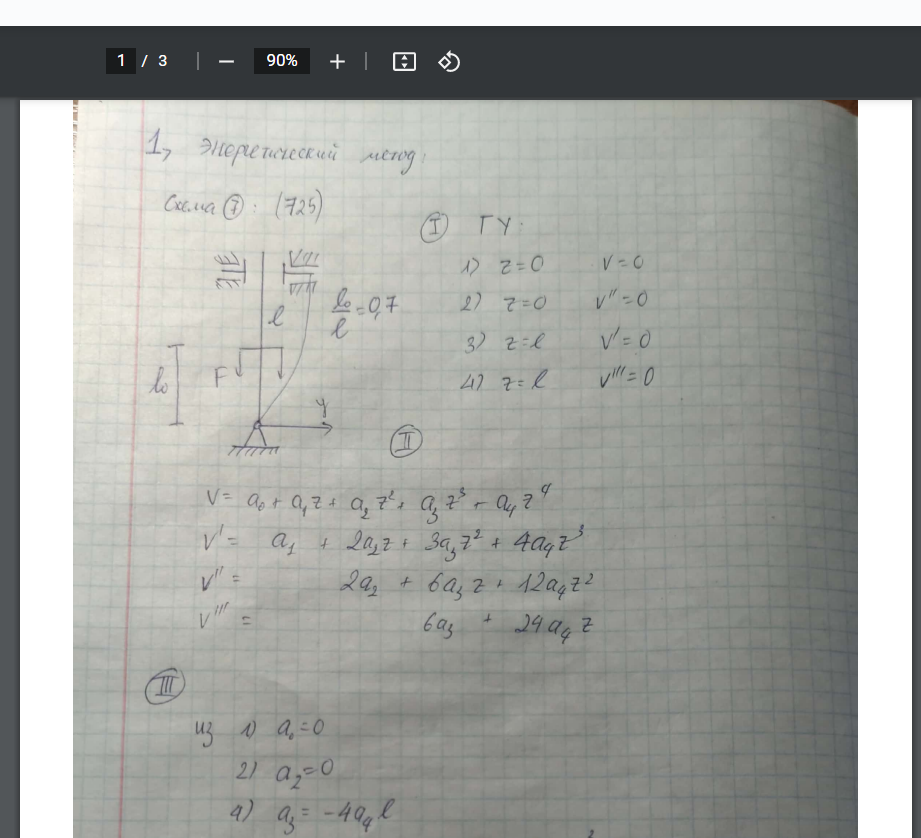 1 / 3 | − 90% + |
1, Энергетический метод:
Схема ⑦: (725)
l₀/l = 0,7
l
l₀
F
y
Ⅰ ГУ:
1) z=0 v=0
2) z=0 v''=0
3) z=l v'=0
4) z=l v'''=0
Ⅱ
v= a₀ + a₁z + a₂z² + a₃z³ + a₄z⁴
v'= a₁ + 2a₂z + 3a₃z² + 4a₄z³
v''= 2a₂ + 6a₃z + 12a₄z²
v'''= 6a₃ + 24a₄z
Ⅲ
из 1) a₀=0
2) a₂=0
4) a₃= -4a₄l